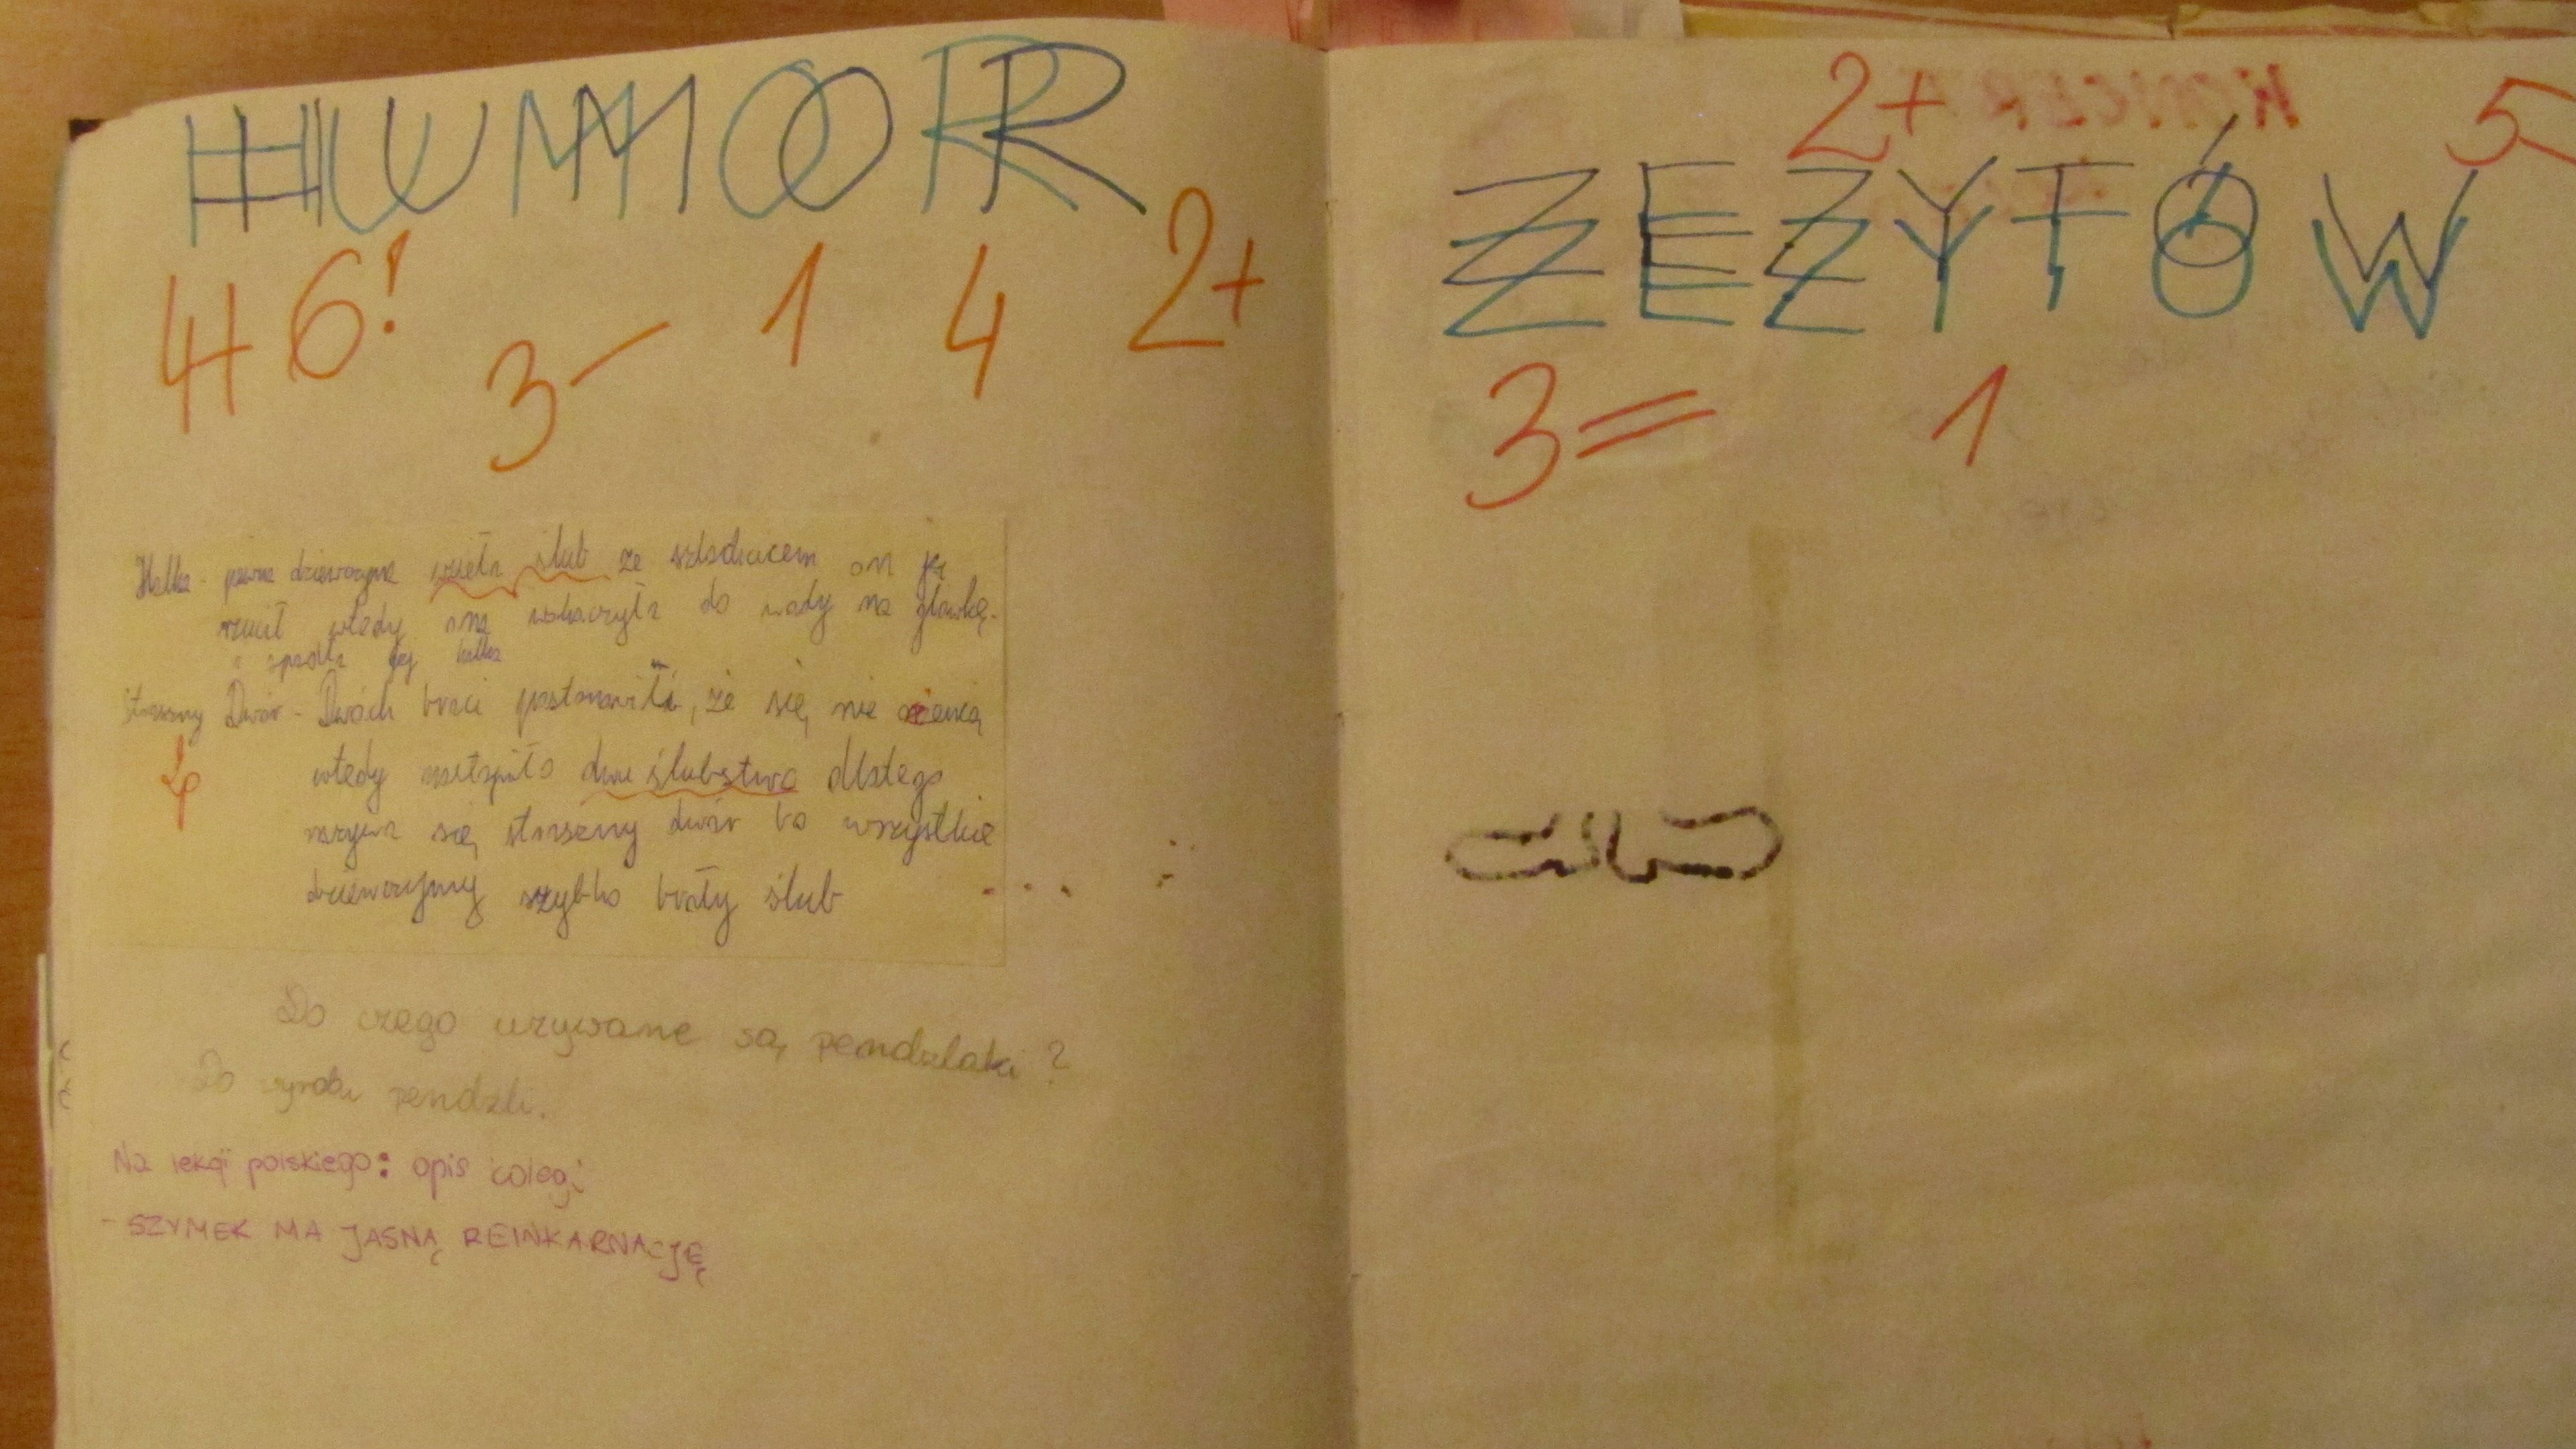 HUMOR
4+ 6! 3- 1 4 2+
Halka - pewna dziewczyna wzieła ślub ze szlachcicem on ją
rzucił wtedy ona wskoczyła do wody na główkę.
i spadła jej halka
Straszny Dwór - Dwóch braci postanowiło, że się nie ożenią
wtedy nastąpiło dwu ślubstwo dlatego
nazywa się straszny dwór bo wszystkie
dziewczyny szybko brały ślub
Do czego urzywane są pendzlaki?
Do wyrobu pendzli.
Na lekcji polskiego: opis kolegi
- SZYMEK MA JASNĄ REINKARNACJĘ
2+ 5-
ZEZYTÓW
3= 1